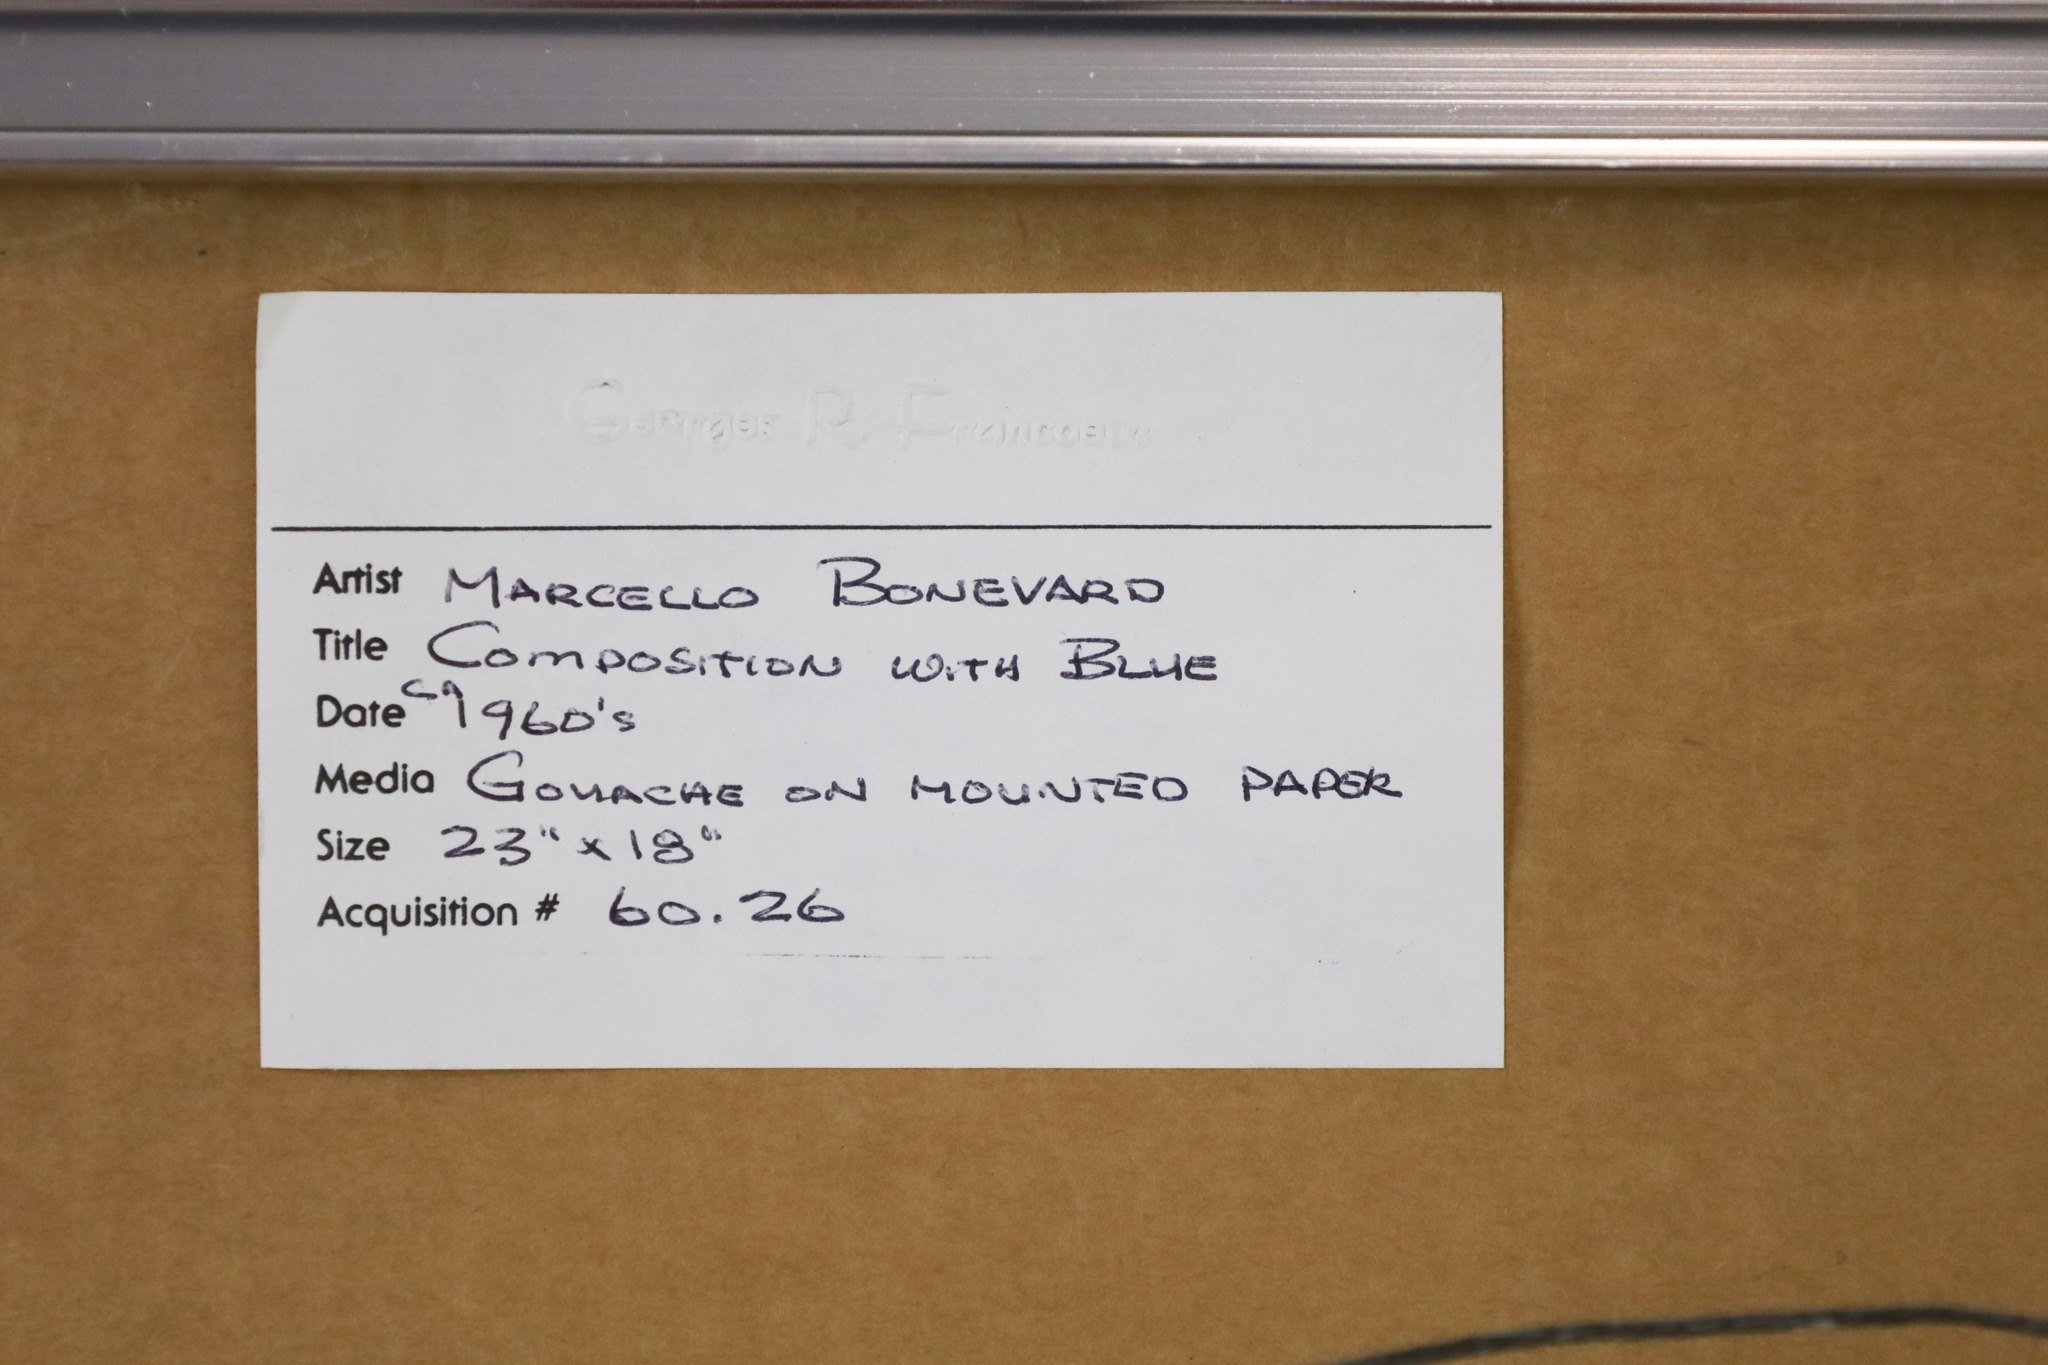 Georges R. Francoeur
Artist MARCELLO BONEVARD
Title COMPOSITION WITH BLUE
Date CA 1960's
Media GOUACHE ON MOUNTED PAPER
Size 23" x 18"
Acquisition # 60.26